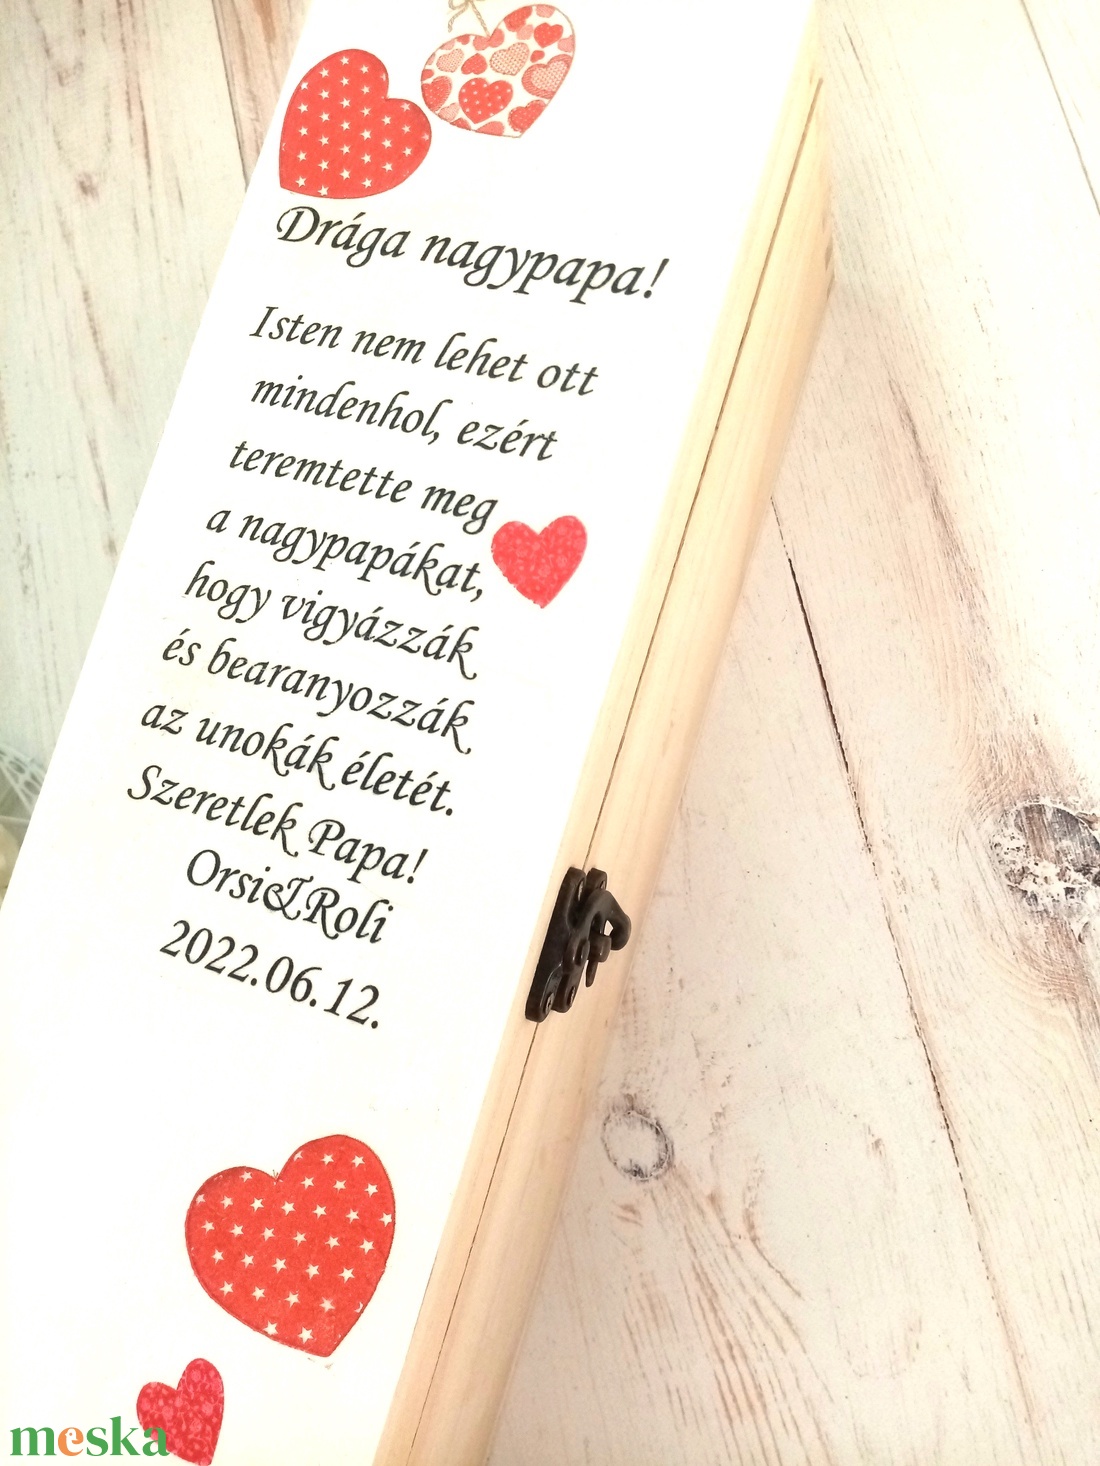 Drága nagypapa!
Isten nem lehet ott
mindenhol, ezért
teremtette meg
a nagypapákat,
hogy vigyázzák
és bearanyozzák
az unokák életét.
Szeretlek Papa!
Orsi&Roli
2022.06.12.
meska